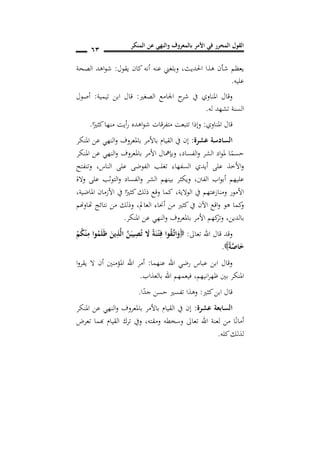 القول المحرر في الأمر بالمعروف والنهي عن المنكر
٦٣
يعظم شأن هذا الحديث، وبلغني عنه أنه كان يقول: شواهد الصحة
عليه.
وقال المناوي في شرح الجامع الصغير: قال ابن تيمية: أصول
السنة تشهد له.
قال المناوي: وإذا تتبعت متفرقات شواهده رأيت منها كثيرًا.
السادسة عشرة: إن في القيام بالأمر بالمعروف والنهي عن المنكر
حسمًا لمواد الشر والفساد، وبإهمال الأمر بالمعروف والنهي عن المنكر
والأخذ على أيدي السفهاء تغلب الفوضى على الناس، وتنفتح
عليهم أبواب الفتن، ويكثر بينهم الشر والفساد والتوثب على ولاة
الأمور ومنازعتهم في الولاية، كما وقع ذلك كثيرًا في الأزمان الماضية،
وكما هو واقع الآن في كثير من أنحاء العالم، وذلك من نتائج تهاونهم
بالدين، وتركهم الأمر بالمعروف والنهي عن المنكر.
وقد قال الله تعالى: ﴿وَاتَّقُوا فِتْنَةً لَا تُصِيبَنَّ الَّذِينَ ظَلَمُوا مِنْكُمْ
خَاصَّةً﴾.
وقال ابن عباس رضي الله عنهما: أمر الله المؤمنين أن لا يقروا
المنكر بين ظهرانيهم، فيعمهم الله بالعذاب.
قال ابن كثير: وهذا تفسير حسن جدًا.
السابعة عشرة: إن في القيام بالأمر بالمعروف والنهي عن المنكر
أمانًا من لعنة الله تعالى وسخطه ومقته، وفي ترك القيام بهما تعرض
لذلك كله.